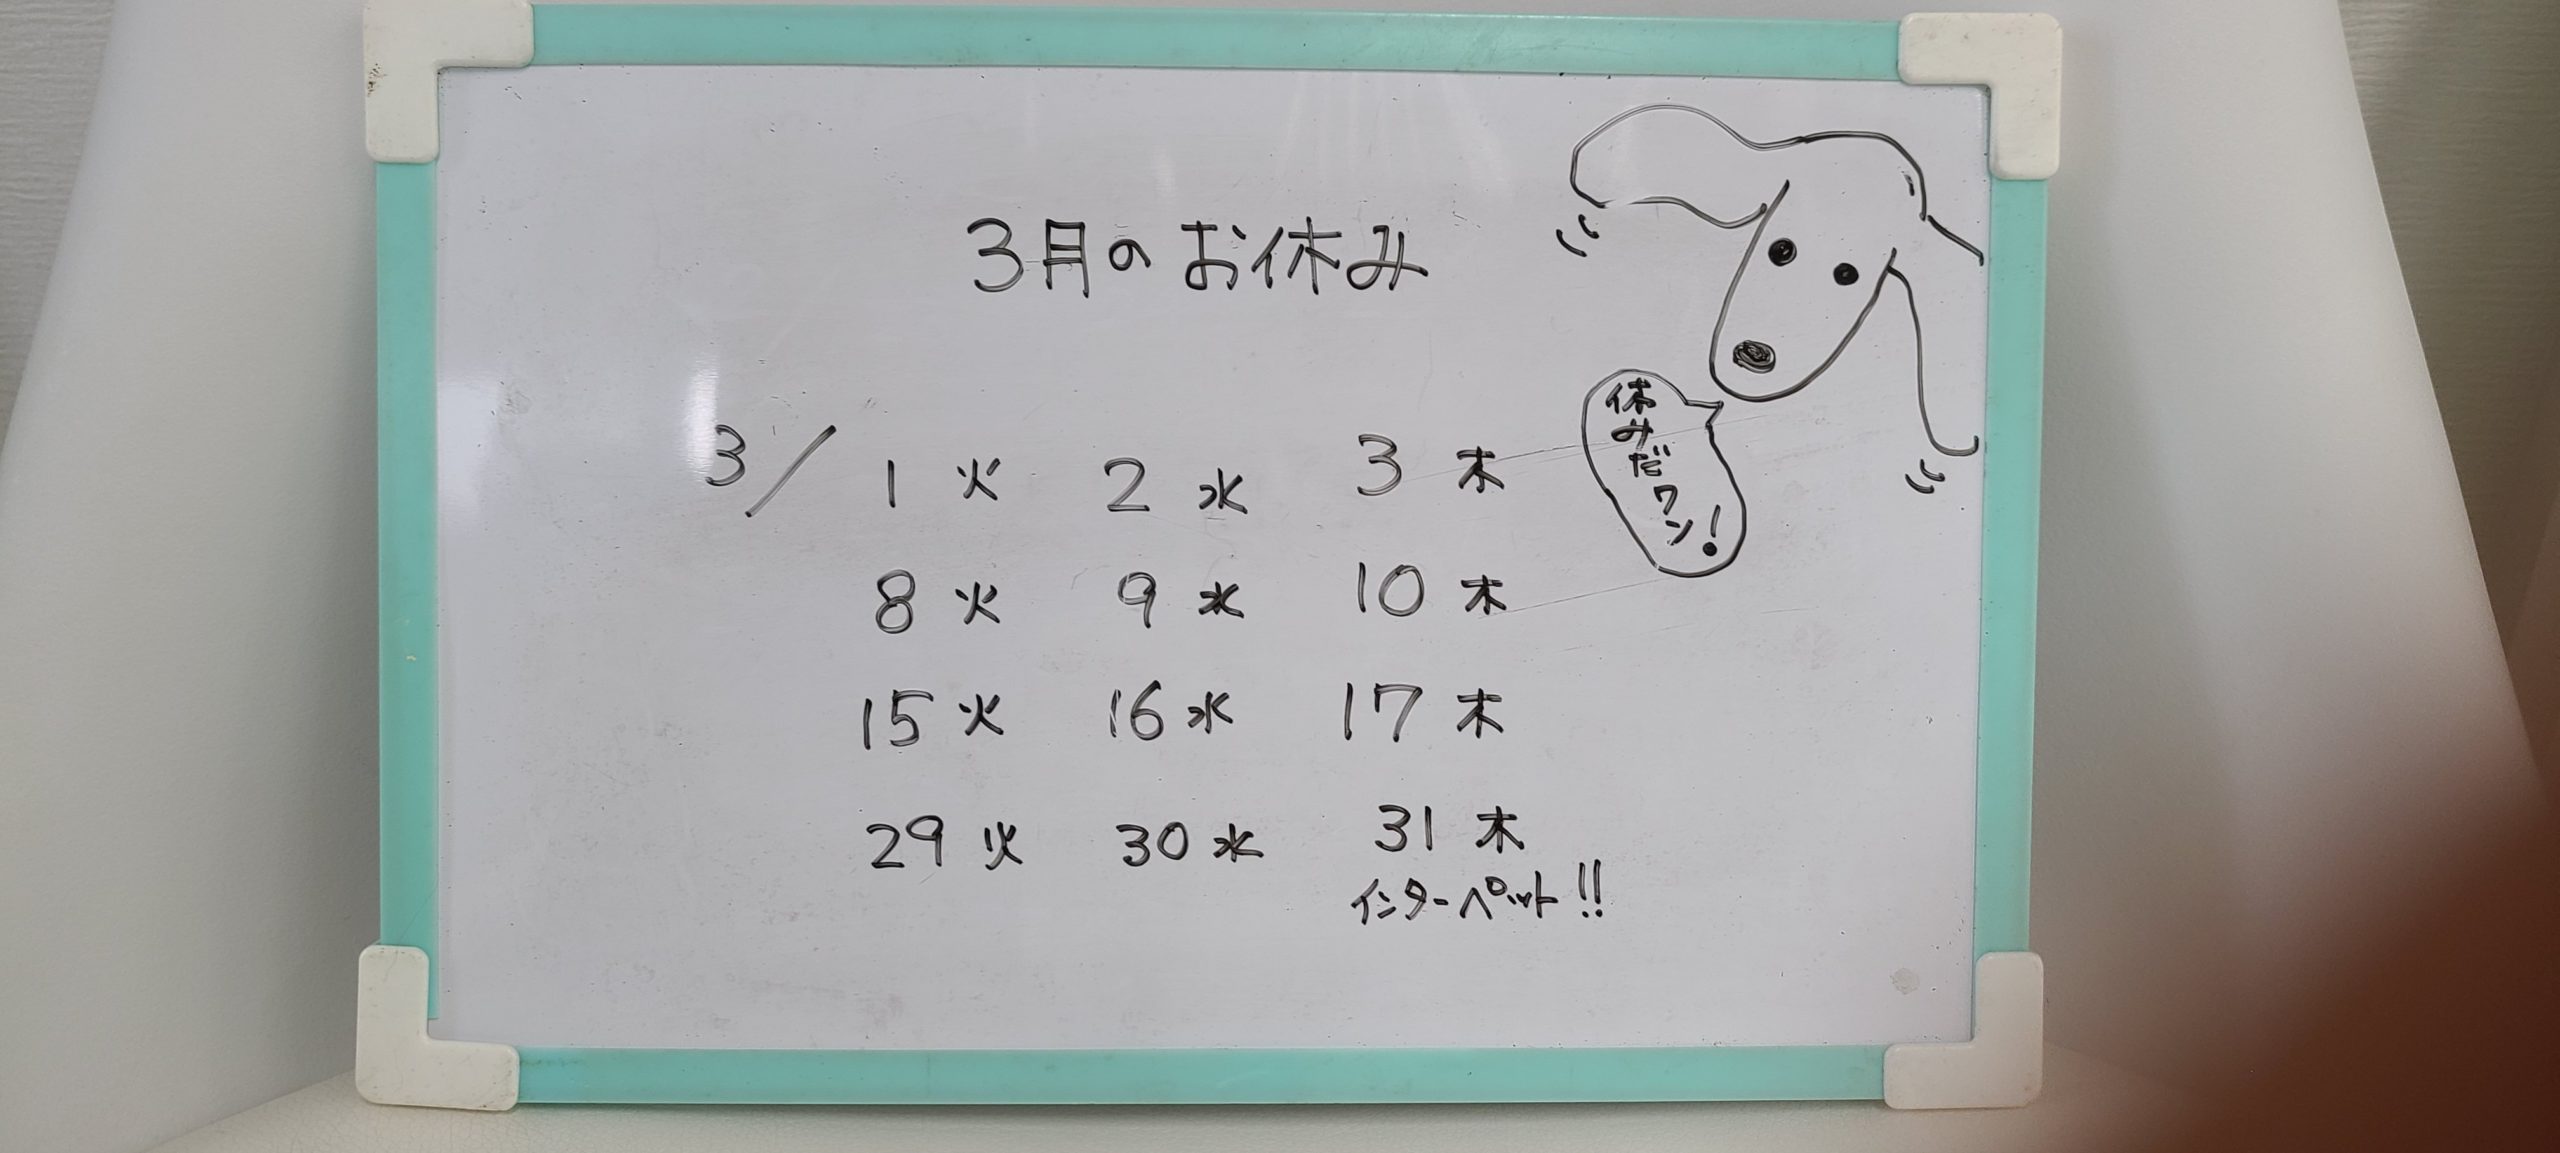 3月のお休み
3/ 1 火 2 水 3 木
8 火 9 水 10 木
15 火 16 水 17 木
29 火 30 水 31 木
インターペット!!
休みだワン!